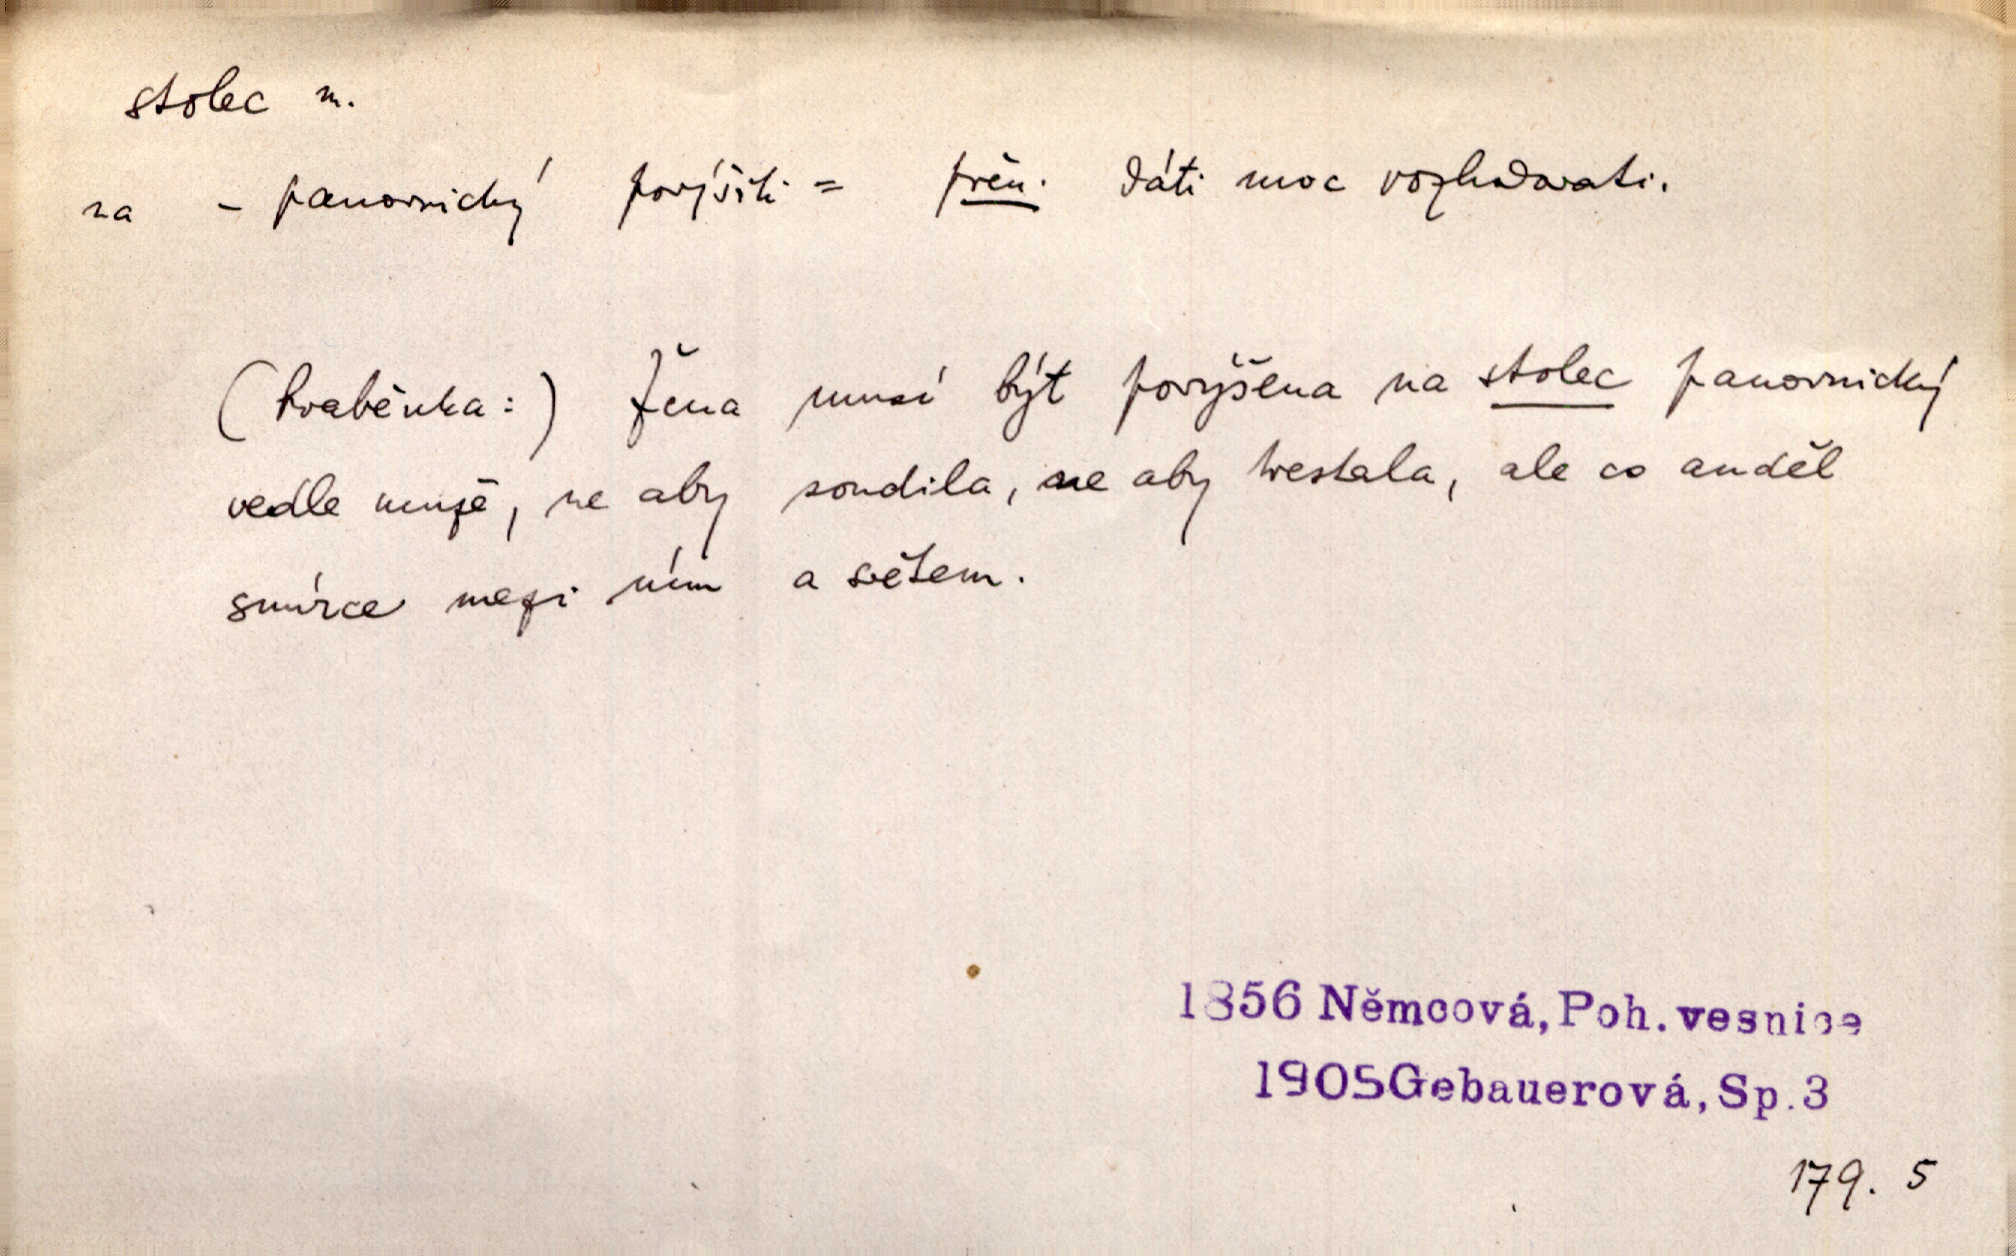 stolec m.
na – panovnický povýšiti = přen. dáti moc rozhodovati.
(hraběnka:) Žena musí být povýšena na stolec panovnický
vedle muže, ne aby soudila, ne aby trestala, ale co anděl
smírce mezi ním a světem.
1856 Němcová, Poh. vesnice
1905 Gebauerová, Sp. 3
179. 5